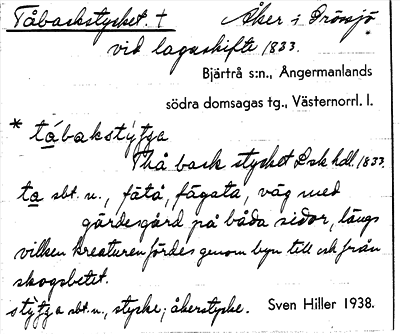 Tåbackstycket. † Åker i Prövsjö
vid lagaskifte 1833.
Bjärtrå s:n., Ångermanlands
södra domsagas tg., Västernorrl. l.
* tábakstýtza
Thå back stycket Lsk hdl. 1833.
ta sbt. n., fätå, fägata, väg med
gärdesgård på båda sidor, längs
vilken kreaturen fördes genom byn till och från
skogsbetet.
stýtza sbt. n., stycke; åkerstycke. Sven Hiller 1938.